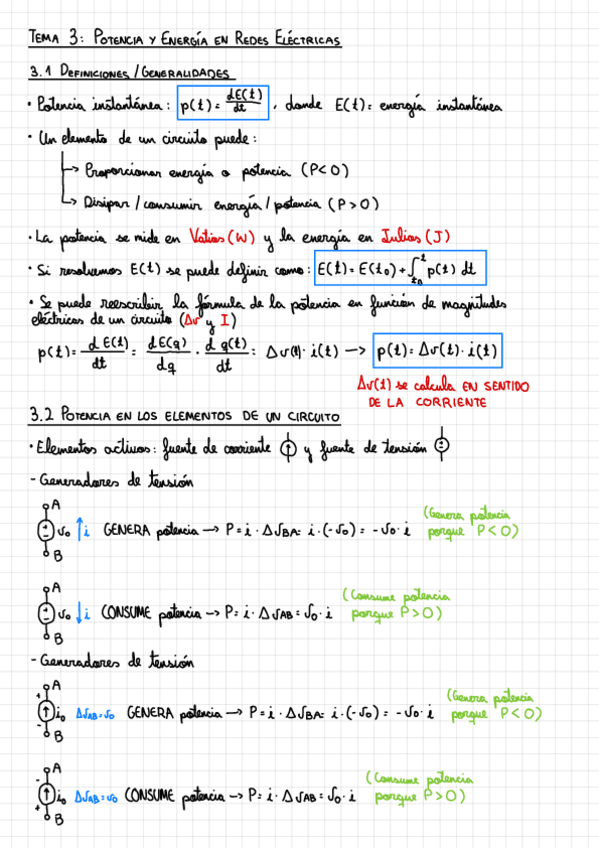 TEMA 3: POTENCIA Y ENERGÍA EN REDES ELÉCTRICAS
3.1 DEFINICIONES/GENERALIDADES
· Potencia instantánea: p(t) = dE(t)/dt, donde E(t) = energía instantánea
· Un elemento de un circuito puede:
→ Proporcionar energía o potencia (P<0)
→ Disipar/consumir energía/potencia (P>0)
· La potencia se mide en Vatios (W) y la energía en Julios (J)
· Si resolvemos E(t) se puede definir como: E(t) = E(t₀) + ∫_{t₀}^{t} p(t) dt
· Se puede reescribir la fórmula de la potencia en función de magnitudes
eléctricas de un circuito (Δv y I)
p(t) = dE(t)/dt = dE(q)/dq · dq(t)/dt = Δv(t) · i(t) → p(t) = Δv(t) · i(t)
Δv(t) se calcula EN SENTIDO
DE LA CORRIENTE
3.2 POTENCIA EN LOS ELEMENTOS DE UN CIRCUITO
· Elementos activos: fuente de corriente y fuente de tensión
- Generadores de tensión
A
+ - v₀ ↑ i GENERA potencia → P = i · ΔvBA = i · (-v₀) = -v₀ · i (Genera potencia
porque P<0)
B
A
+ - v₀ ↓ i CONSUME potencia → P = i · ΔvAB = v₀ · i (Consume potencia
porque P>0)
B
- Generadores de tensión
+ A
i₀ ΔvAB = v₀ GENERA potencia → P = i · ΔvBA = i · (-v₀) = -v₀ · i (Genera potencia
porque P<0)
- B
- A
i₀ ΔvAB = v₀ CONSUME potencia → P = i · ΔvAB = v₀ · i (Consume potencia
porque P>0)
+ B